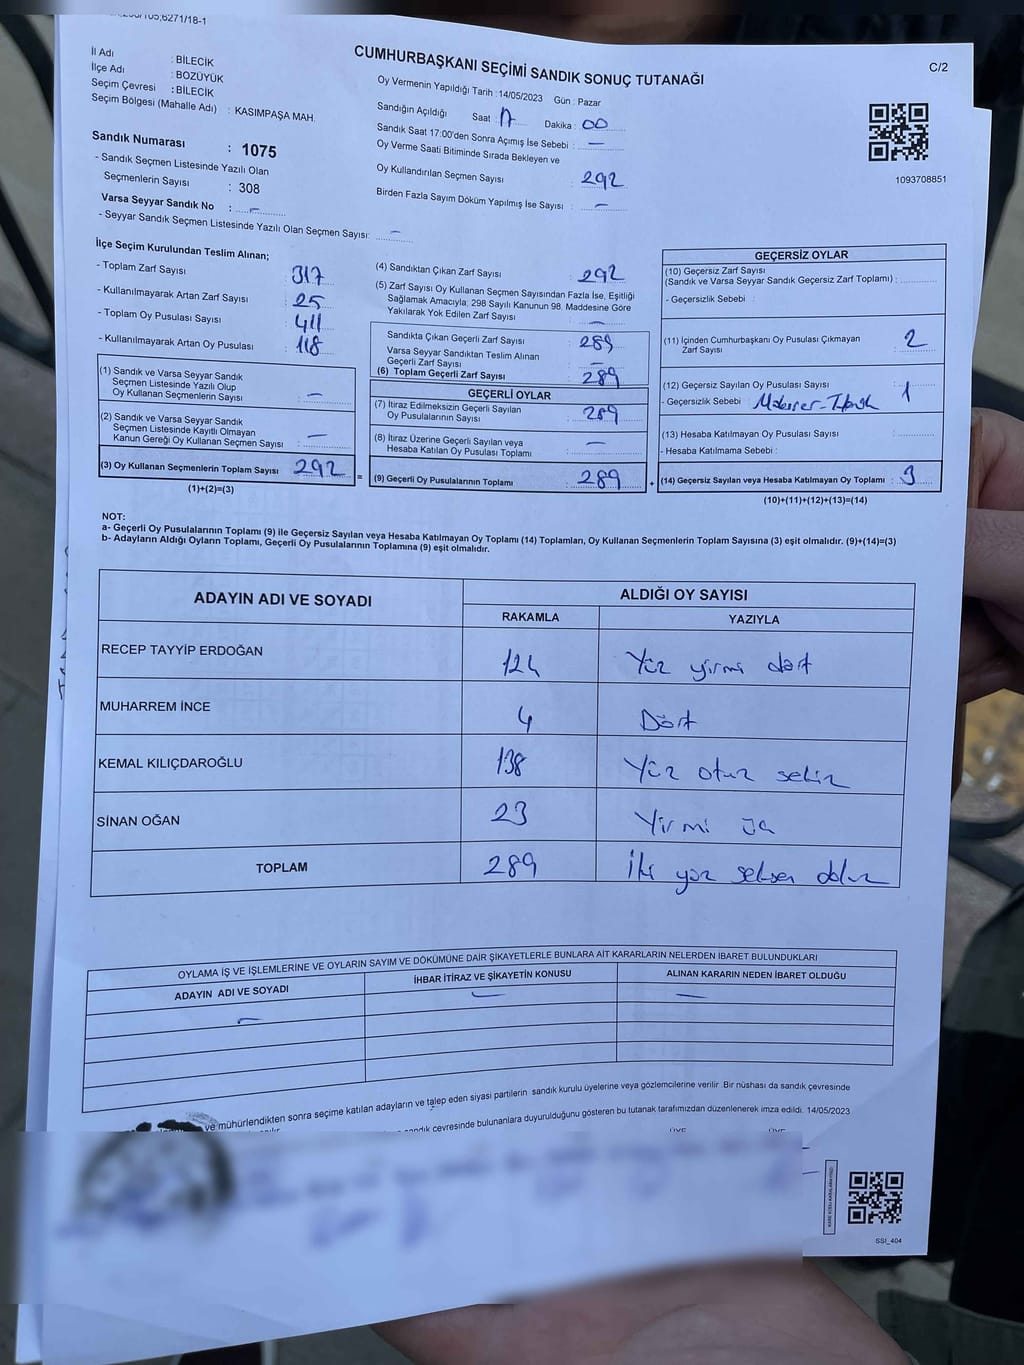 CUMHURBAŞKANI SEÇİMİ SANDIK SONUÇ TUTANAĞI
C/2
İl Adı : BİLECİK
İlçe Adı : BOZÜYÜK
Seçim Çevresi : BİLECİK
Seçim Bölgesi (Mahalle Adı) : KASIMPAŞA MAH.
Sandık Numarası : 1075
- Sandık Seçmen Listesinde Yazılı Olan
Seçmenlerin Sayısı : 308
Varsa Seyyar Sandık No : -
- Seyyar Sandık Seçmen Listesinde Yazılı Olan Seçmen Sayısı: -
Oy Vermenin Yapıldığı Tarih : 14/05/2023 Gün : Pazar
Sandığın Açıldığı Saat : 17 Dakika : 00
Sandık Saat 17:00'den Sonra Açımış İse Sebebi : -
Oy Verme Saati Bitiminde Sırada Bekleyen ve
Oy Kullandırılan Seçmen Sayısı : 292
Birden Fazla Sayım Döküm Yapılmış İse Sayısı : -
1093708851
İlçe Seçim Kurulundan Teslim Alınan;
- Toplam Zarf Sayısı : 317
- Kullanılmayarak Artan Zarf Sayısı : 25
- Toplam Oy Pusulası Sayısı : 411
- Kullanılmayarak Artan Oy Pusulası : 118
(1) Sandık ve Varsa Seyyar Sandık
Seçmen Listesinde Yazılı Olup
Oy Kullanan Seçmenlerin Sayısı : -
(2) Sandık ve Varsa Seyyar Sandık
Seçmen Listesinde Kayıtlı Olmayan
Kanun Gereği Oy Kullanan Seçmen Sayısı : -
(3) Oy Kullanan Seçmenlerin Toplam Sayısı : 292
(1)+(2)=(3)
(4) Sandıktan Çıkan Zarf Sayısı : 292
(5) Zarf Sayısı Oy Kullanan Seçmen Sayısından Fazla İse, Eşitliği
Sağlamak Amacıyla; 298 Sayılı Kanunun 98. Maddesine Göre
Yakılarak Yok Edilen Zarf Sayısı : -
Sandıkta Çıkan Geçerli Zarf Sayısı : 289
Varsa Seyyar Sandıktan Teslim Alınan
Geçerli Zarf Sayısı : -
(6) Toplam Geçerli Zarf Sayısı : 289
GEÇERLİ OYLAR
(7) İtiraz Edilmeksizin Geçerli Sayılan
Oy Pusulalarının Sayısı : 289
(8) İtiraz Üzerine Geçerli Sayılan veya
Hesaba Katılan Oy Pusulası Toplamı : -
= (9) Geçerli Oy Pusulalarının Toplamı : 289
GEÇERSİZ OYLAR
(10) Geçersiz Zarf Sayısı
(Sandık ve Varsa Seyyar Sandık Geçersiz Zarf Toplamı) :
- Geçersizlik Sebebi :
(11) İçinden Cumhurbaşkanı Oy Pusulası Çıkmayan
Zarf Sayısı : 2
(12) Geçersiz Sayılan Oy Pusulası Sayısı : 1
- Geçersizlik Sebebi :
(13) Hesaba Katılmayan Oy Pusulası Sayısı :
- Hesaba Katılmama Sebebi :
+ (14) Geçersiz Sayılan veya Hesaba Katılmayan Oy Toplamı : 3
(10)+(11)+(12)+(13)=(14)
NOT:
a- Geçerli Oy Pusulalarının Toplamı (9) ile Geçersiz Sayılan veya Hesaba Katılmayan Oy Toplamı (14) Toplamları, Oy Kullanan Seçmenlerin Toplam Sayısına (3) eşit olmalıdır. (9)+(14)=(3)
b- Adayların Aldığı Oyların Toplamı, Geçerli Oy Pusulalarının Toplamına (9) eşit olmalıdır.
ADAYIN ADI VE SOYADI ALDIĞI OY SAYISI
RAKAMLA YAZIYLA
RECEP TAYYİP ERDOĞAN 124 Yüz yirmi dört
MUHARREM İNCE 4 Dört
KEMAL KILIÇDAROĞLU 138 Yüz otuz sekiz
SİNAN OĞAN 23 Yirmi üç
TOPLAM 289 İki yüz seksen dokuz
OYLAMA İŞ VE İŞLEMLERİNE VE OYLARIN SAYIM VE DÖKÜMÜNE DAİR ŞİKAYETLERLE BUNLARA AİT KARARLARIN NELERDEN İBARET BULUNDUKLARI
ADAYIN ADI VE SOYADI İHBAR İTİRAZ VE ŞİKAYETİN KONUSU ALINAN KARARIN NEDEN İBARET OLDUĞU
- - -
ve mühürlendikten sonra seçime katılan adayların ve talep eden siyasi partilerin sandık kurulu üyelerine veya gözlemcilerine verilir .Bir nüshası da sandık çevresinde
çevresinde bulunanlara duyurulduğunu gösteren bu tutanak tarafımızdan düzenlenerek imza edildi. 14/05/2023
ÜYE ÜYE
SSI_404